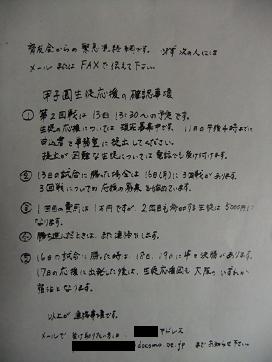 育友会からの緊急連絡網です。必ず次の人には
メールまたはFAXで伝えて下さい。
甲子園生徒応援の確認事項
① 第2回戦は13日 13:30〜の予定です。
生徒の応援については現在募集中です。11日午後4時までに
申込書を事務室に提出してください。
提出が困難な生徒については電話でも受け付けます。
② 13日の試合に勝った場合は16日(月)に3回戦があります。
3回戦についての応援の募集も始めています。
③ 1回目の費用は1万円ですが、2回目も参加する生徒は5000円に
なります。
④ 勝ち進んだときは、また連絡をします。
⑤ 16日の試合に勝った時は 18日、19日に準々決勝があります。
17日の応援に出発した後は、生徒応援団も大阪のいずれか
宿泊となります。
以上が連絡事項です。
メールで受け取りたい方は アドレス
docomo.ne.jp までお知らせ下さい。